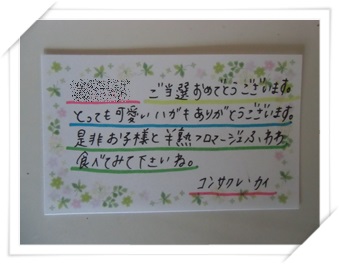 ご当選おめでとうございます。
とっても可愛いハガキありがとうございます。
是非お子様と半熟フロマージュふわわ
食べてみて下さいね。
コンサクレ・カイ